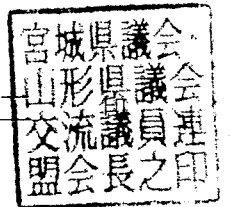 宮城県議会
山形県議会
交流議員連
盟会長之印